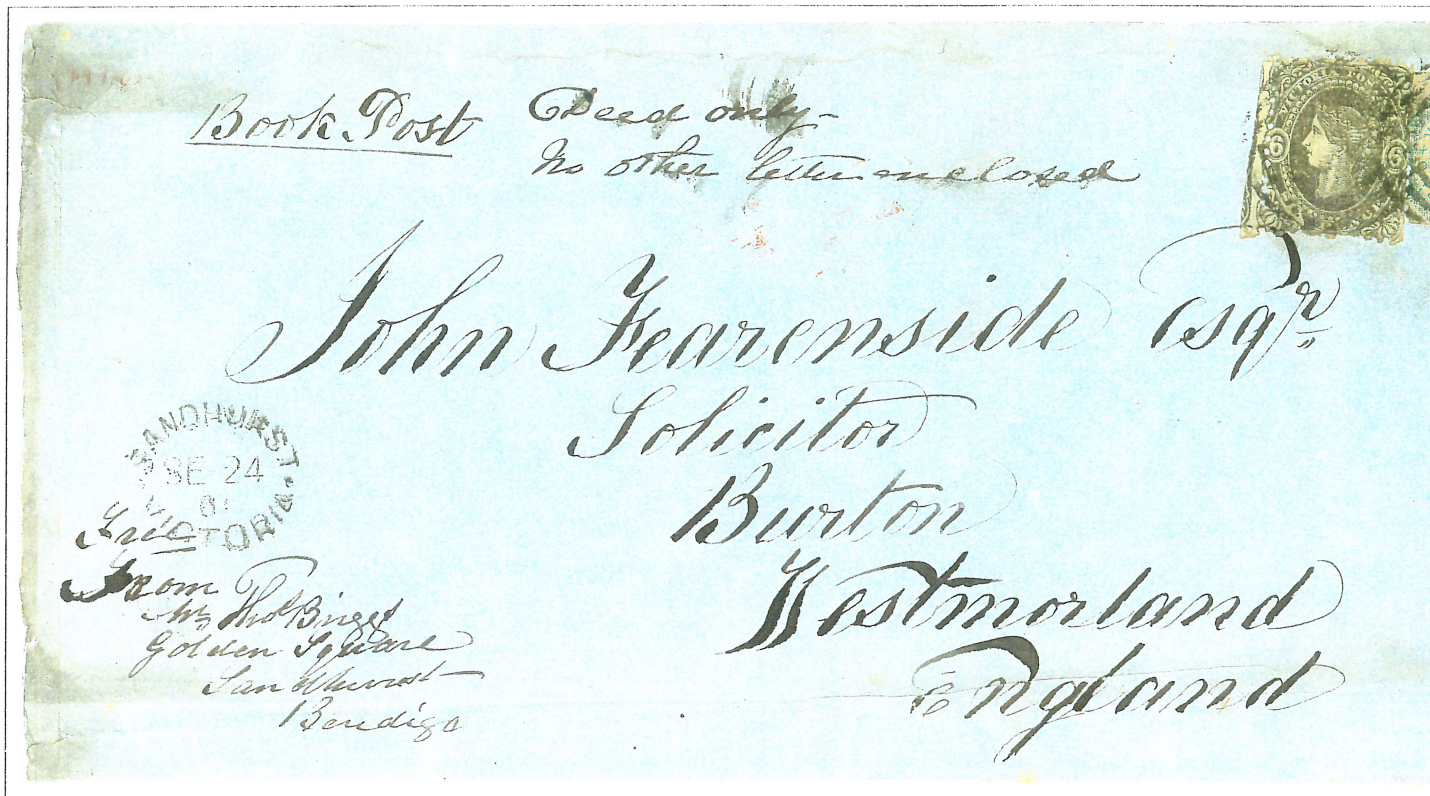 Book Post
Deed only-
No other letter enclosed
VICTORIA
6 6
John Fearenside Esqr.
Solicitor
Burton
Westmorland
England
SANDHURST
SE 24
61
VICTORIA
From
Mr Thos Briggs
Golden Square
Sandhurst
Bendigo